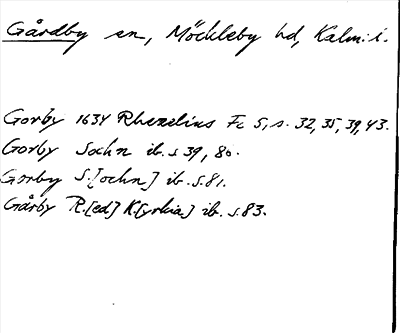 Gårdby sn, Möckleby hd, Kalm. l.
Gorby 1634 Rhezelius Fc 5, s. 32, 35, 39, 43.
Gorby Sochn ib. s 39, 80.
Gorby S.[ochn] ib. s. 81.
Gårby R.[ed] K[yrkia] ib. s. 83.